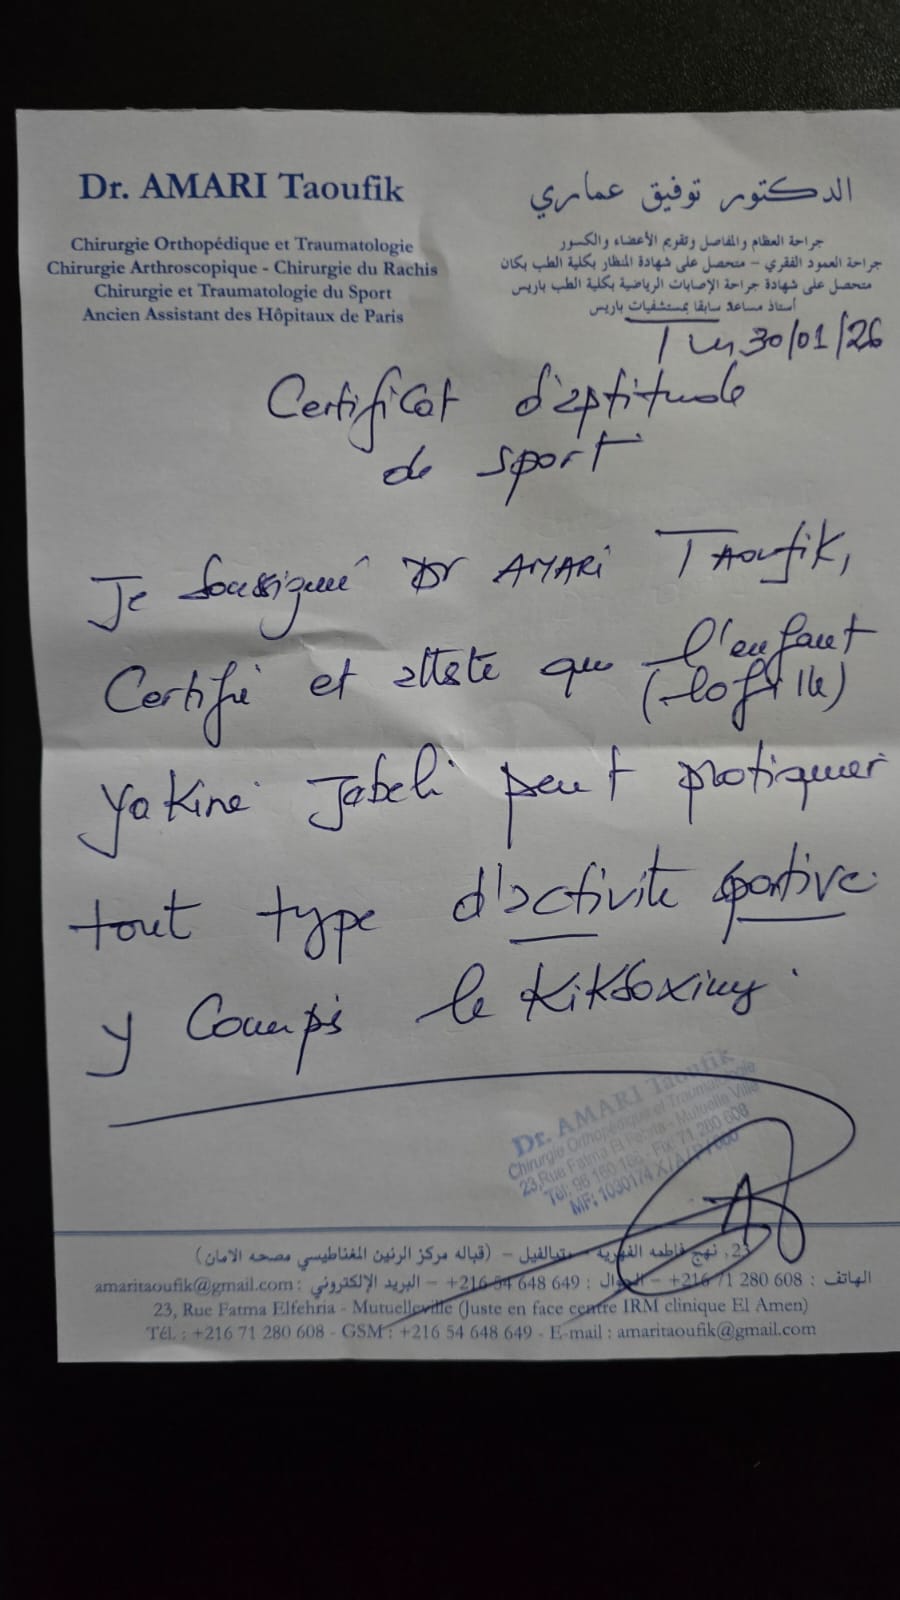 Dr. AMARI Taoufik
Chirurgie Orthopédique et Traumatologie
Chirurgie Arthroscopique - Chirurgie du Rachis
Chirurgie et Traumatologie du Sport
Ancien Assistant des Hôpitaux de Paris
الدكتور توفيق عماري
جراحة العظام والمفاصل وتقويم الأعضاء والكسور
جراحة العمود الفقري – متحصل على شهادة المنظار بكلية الطب بكان
متحصل على شهادة جراحة الإصابات الرياضية بكلية الطب باريس
أستاذ مساعد سابقا بمستشفيات باريس
30/01/26
Certificat d'aptitude
de sport
Je soussigné Dr AMARI Taoufik,
Certifie et atteste que l'enfant
(la fille)
Yakine Jabeli peut pratiquer
tout type d'activité sportive
y compris le Kikboxing.
Dr. AMARI Taoufik
Chirurgie Orthopédique et Traumatologie
23,Rue Fatma El Fehria - Mutuelle Ville
Tél: 98 160 166 - Fix: 71 280 608
MF: 1030174 X/A/P/000
23, نهج فاطمه الفهرية – ميتيالفيل – (قباله مركز الرنين المغناطيسي مصحه الامان)
الهاتف : 608 280 71 216+ – الجوال : 649 648 54 216+ – البريد الإلكتروني : amaritaoufik@gmail.com
23, Rue Fatma Elfehria - Mutuelleville (Juste en face centre IRM clinique El Amen)
Tél. : +216 71 280 608 - GSM : +216 54 648 649 - E-mail : amaritaoufik@gmail.com